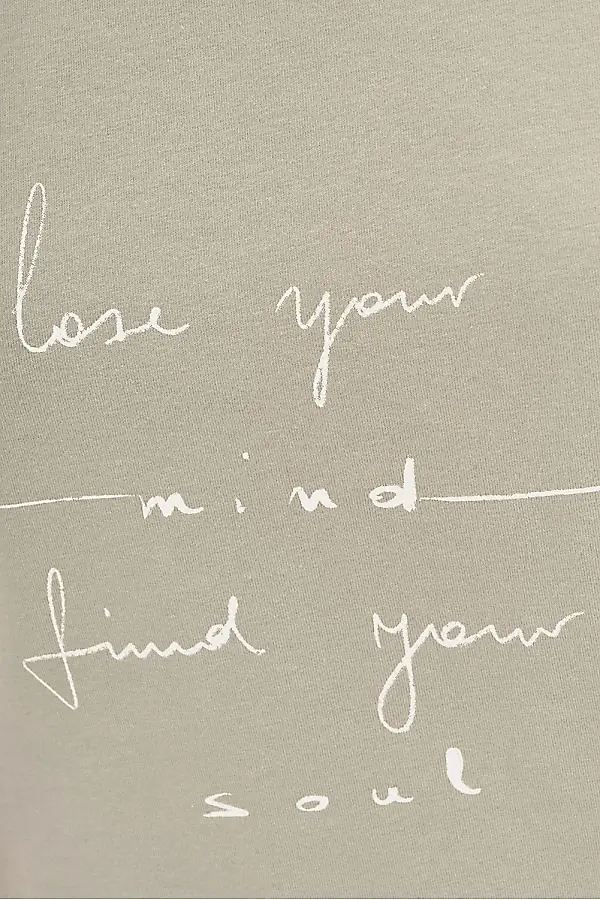 lose your
mind
find your
soul